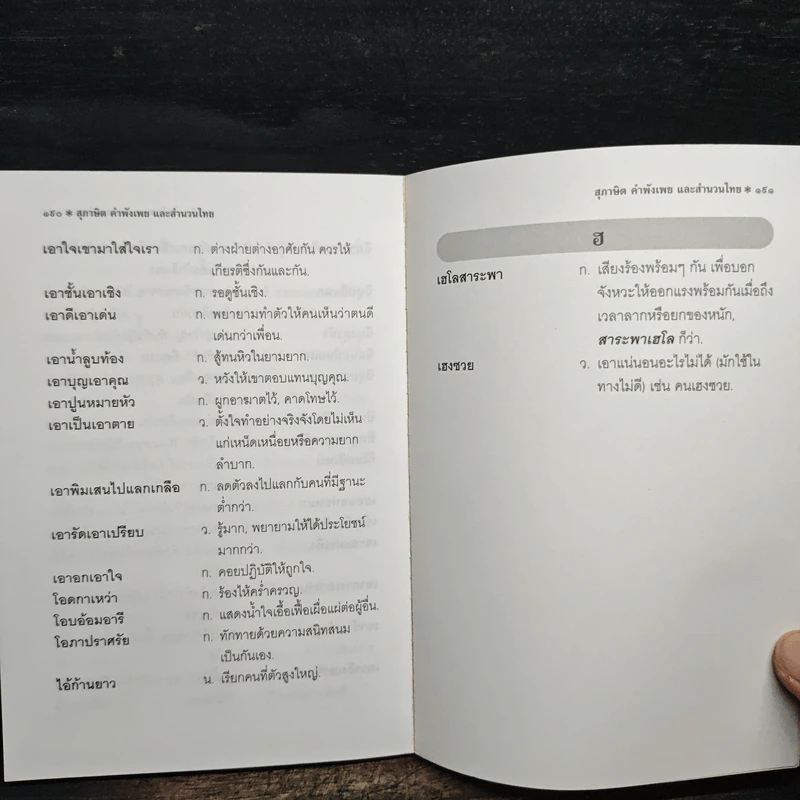 ๑๙๐ * สุภาษิต คำพังเพย และสำนวนไทย
เอาใจเขามาใส่ใจเรา ก. ต่างฝ่ายต่างอาศัยกัน ควรให้
เกียรติซึ่งกันและกัน.
เอาชั้นเอาเชิง ก. รอดูชั้นเชิง.
เอาดีเอาเด่น ก. พยายามทำตัวให้คนเห็นว่าตนดี
เด่นกว่าเพื่อน.
เอาน้ำลูบท้อง ก. สู้ทนหิวในยามยาก.
เอาบุญเอาคุณ ว. หวังให้เขาตอบแทนบุญคุณ.
เอาปูนหมายหัว ก. ผูกอาฆาตไว้, คาดโทษไว้.
เอาเป็นเอาตาย ว. ตั้งใจทำอย่างจริงจังโดยไม่เห็น
แก่เหน็ดเหนื่อยหรือความยาก
ลำบาก.
เอาพิมเสนไปแลกเกลือ ก. ลดตัวลงไปแลกกับคนที่มีฐานะ
ต่ำกว่า.
เอารัดเอาเปรียบ ว. รู้มาก, พยายามให้ได้ประโยชน์
มากกว่า.
เอาอกเอาใจ ก. คอยปฏิบัติให้ถูกใจ.
โอดกาเหว่า ก. ร้องไห้คร่ำครวญ.
โอบอ้อมอารี ก. แสดงน้ำใจเอื้อเฟื้อเผื่อแผ่ต่อผู้อื่น.
โอภาปราศรัย ก. ทักทายด้วยความสนิทสนม
เป็นกันเอง.
ไอ้ก้านยาว น. เรียกคนที่ตัวสูงใหญ่.
สุภาษิต คำพังเพย และสำนวนไทย * ๑๙๑
ฮ
เฮโลสาระพา ก. เสียงร้องพร้อมๆ กัน เพื่อบอก
จังหวะให้ออกแรงพร้อมกันเมื่อถึง
เวลาลากหรือยกของหนัก,
สาระพาเฮโล ก็ว่า.
เฮงซวย ว. เอาแน่นอนอะไรไม่ได้ (มักใช้ใน
ทางไม่ดี) เช่น คนเฮงซวย.